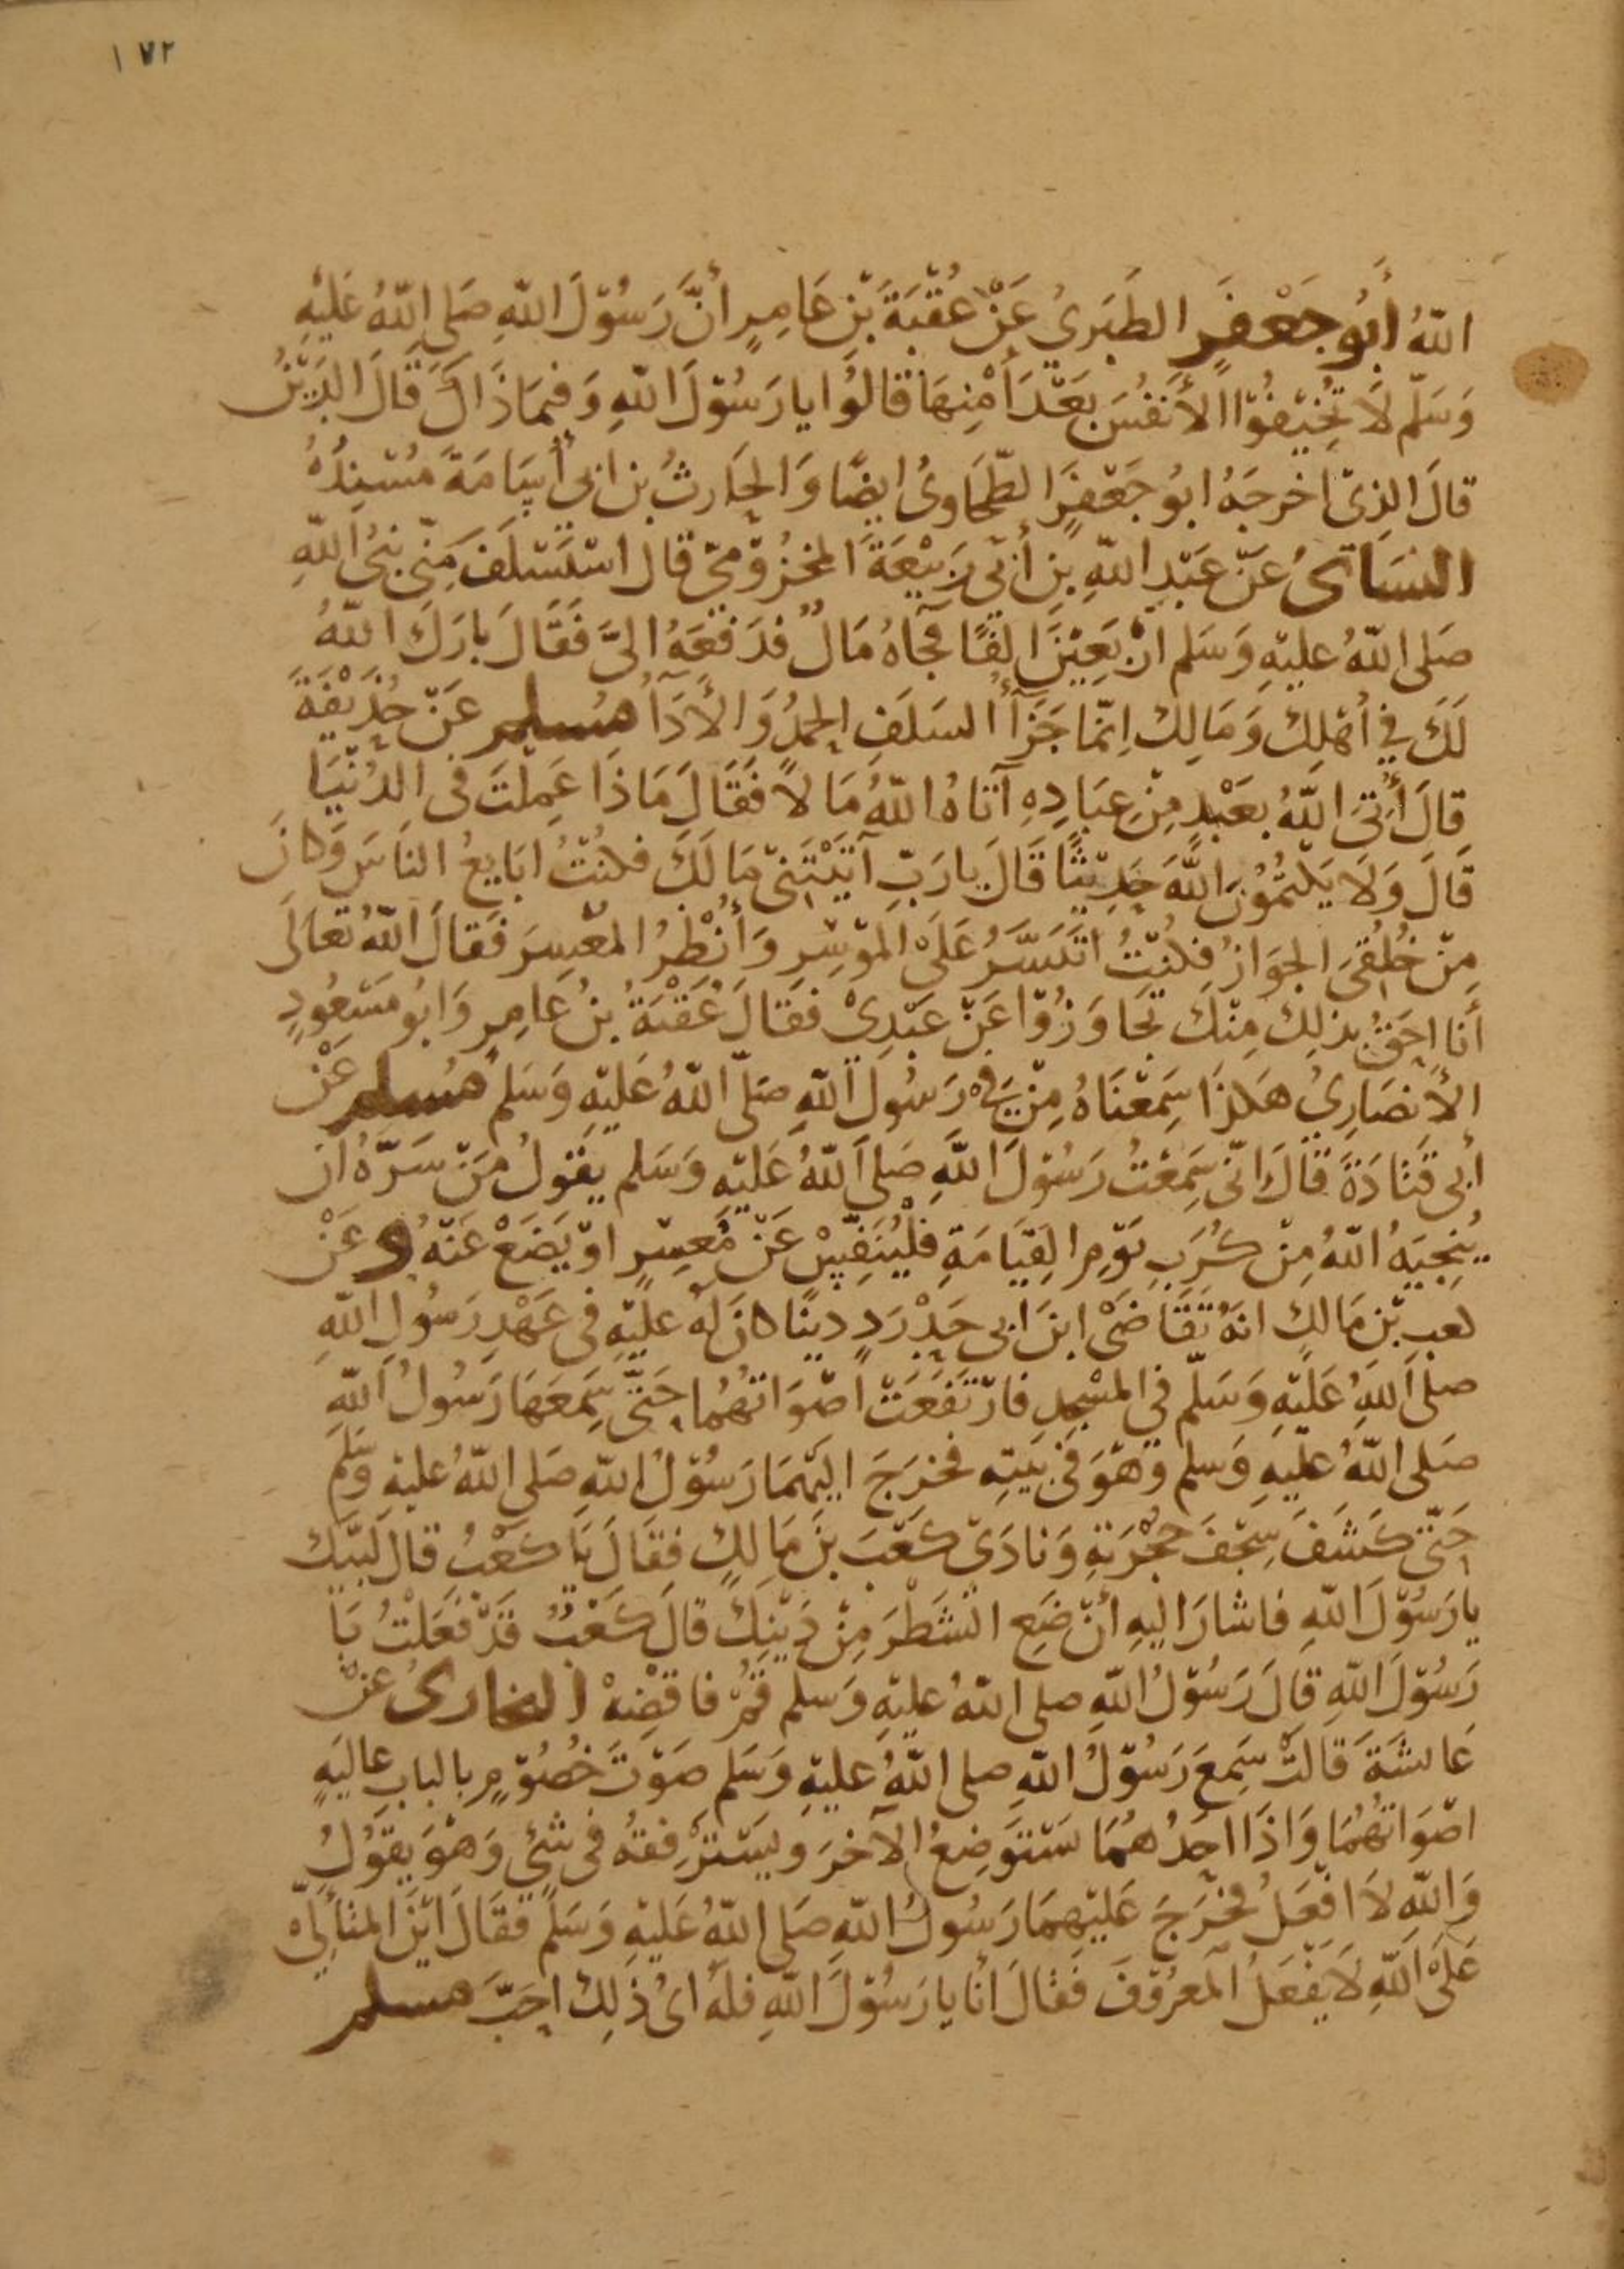 ١٧٢
اللّهُ أَبُو جَعْفَرٍ الطَبَرِىُ عَنْ عُقْبَةَ بْنِ عَامِرٍ أَنَّ رَسُوْلَ اللّهِ صَلى اللّهُ عَلَيْهِ
وَسَلّم لَا تُخِيْفُوْا الأَنفُسَ بَعْدَ أَمْنِهَا قَالُوْا يا رَسُوْلَ اللّهِ وَفِيمَا ذَاكَ قَالَ الدَيْنُ
قالَ الذِىْ اخرجَهُ ابُو جَعْفَرٍ الطّحَاوِىُ ايضًا وَالحَارثُ بن ابى أُسَامَةَ مُسْنِدُهُ
النسَائىُ عَنْ عَبْدِ اللّهِ بْنِ أَبْى رَبِيْعَةَ المخزُوْمىّ قال استَسْلَفَ مِنّى نبىُ اللّهِ
صَلى اللّهُ عليْهِ وَسَلم أَرْبَعِيْنَ الفًا فجَآهُ مَالٌ فدَفعَهُ الىَّ فَقَالَ بارَكَ اللّهُ
لَكَ فِي أهْلِكَ وَمَالِكَ اِنّمَا جَزَآأُ السَلَفِ الحَمْدُ وَالأَدَآأُ مُسلم عَنْ حُذَيْفَةَ
قالَ أُتِىَ اللّهُ بعَبْدٍ مِنْ عِبَادِهِ آتَاهُ اللّهُ مَالًا فَقَالَ مَاذَا عَمِلْتَ فى الدُنْيَا
قَالَ وَلَا يَكتُمُوْنَ اللّهَ حَدِيْثًا قَالَ يارَبّ آتَيْتَنىْ مَالَكَ فكنْتُ ابَايِعُ الناسَ وَكانَ
مِنْ خُلُقىَ الجوَازُ فكُنْتُ اتَيَسَّرُ عَلَى الموْسِرِ وَأُنْظِرُ المُعْسِرَ فَقالَ اللّهُ تَعَالَى
أَنا احَقُ بذلِكَ مِنْكَ تجَاوَزُوْا عَنْ عَبْدِىْ فقَالَ عُقْبَةُ بنُ عَامِرٍ وَابُو مَسْعُودٍ
الأَنصَارِىُ هَكذَا سَمِعْنَاهُ مِنْ فِىْ رَسُولِ اللّهِ صَلّى اللّهُ عَلَيْهِ وَسَلم مُسلم عَنْ
أبى قَتَادَةَ قَالَ انّى سَمِعْتُ رَسُوْلَ اللّهِ صَلى اللّهُ عَلَيْهِ وَسَلم يقوْلُ مَنْ سَرّهُ ان
يُنْجِيَهُ اللّهُ مِنْ كُرَبِ يَوْمِ القِيَامَةِ فلْيُنَفِّسْ عَنْ مُعسِرٍ اوْ يَضَعْ عَنْهُ وعَنْ
كعبِ بْن مَالكٍ انهُ تَقَاضَىْ ابنَ ابى حَدْرَدٍ دينًا كانَ لَهُ عَليْهِ فى عَهْدِ رَسُولِ اللّهِ
صلى اللّهُ عَلَيْهِ وَسَلّم فى المسْجدِ فارْتَفَعَتْ أصْوَاتُهُمَا حَتّى سَمِعَهَا رَسُولُ اللّهِ
صَلى اللّهُ عَليْهِ وَسلم وَهوَ فى بَيْتِهِ فخرَجَ اليْهمَا رَسُوْلُ اللّهِ صَلى اللّهُ عليْهِ وَسَلّم
حَتّى كَشَفَ سِجْفَ حُجْرَتِهِ وَنادَىْ كَعْبَ بنَ مَالِكٍ فقَالَ يَا كعْبُ قالَ لبَيْكَ
يا رَسُوْلَ اللّهِ فاشارَ اليهِ أَنْ ضَعِ الشطْرَ مِنْ دَيْنِكَ قالَ كَعْبٌ قَدْ فَعَلْتُ يَا
رَسُوْلَ اللّهِ قَالَ رَسُوْلُ اللّهِ صلى اللّهُ عليْهِ وَسلم قُمْ فاقضِهْ البخارىُ عَنْ
عَائشَةَ قَالَتْ سَمِعَ رَسُوْلُ اللّهِ صلى اللّهُ عليْهِ وَسَلم صَوْتَ خُصُوْمٍ بالبابِ عاليَةٍ
اصْوَاتُهُمَا وَاذَا احَدُهُمَا يسْتَوْضِعُ الآخرَ ويسْتَرْفِقُهُ فى شَئٍ وَهْوَ يقوْلُ
وَاللّهِ لَا افْعَلُ فخرَجَ عَليْهِمَا رَسُولُ اللّهِ صَلى اللّهُ عَليْهِ وَسَلم فقَالَ ايْنَ المتأَلىّ
عَلَى اللّهِ لَا يفْعَلُ المَعرُوْفَ فَقالَ أنَا يا رَسُوْلَ اللّهِ فلَهُ اىُ ذَلِكَ احَبَّ مسلم